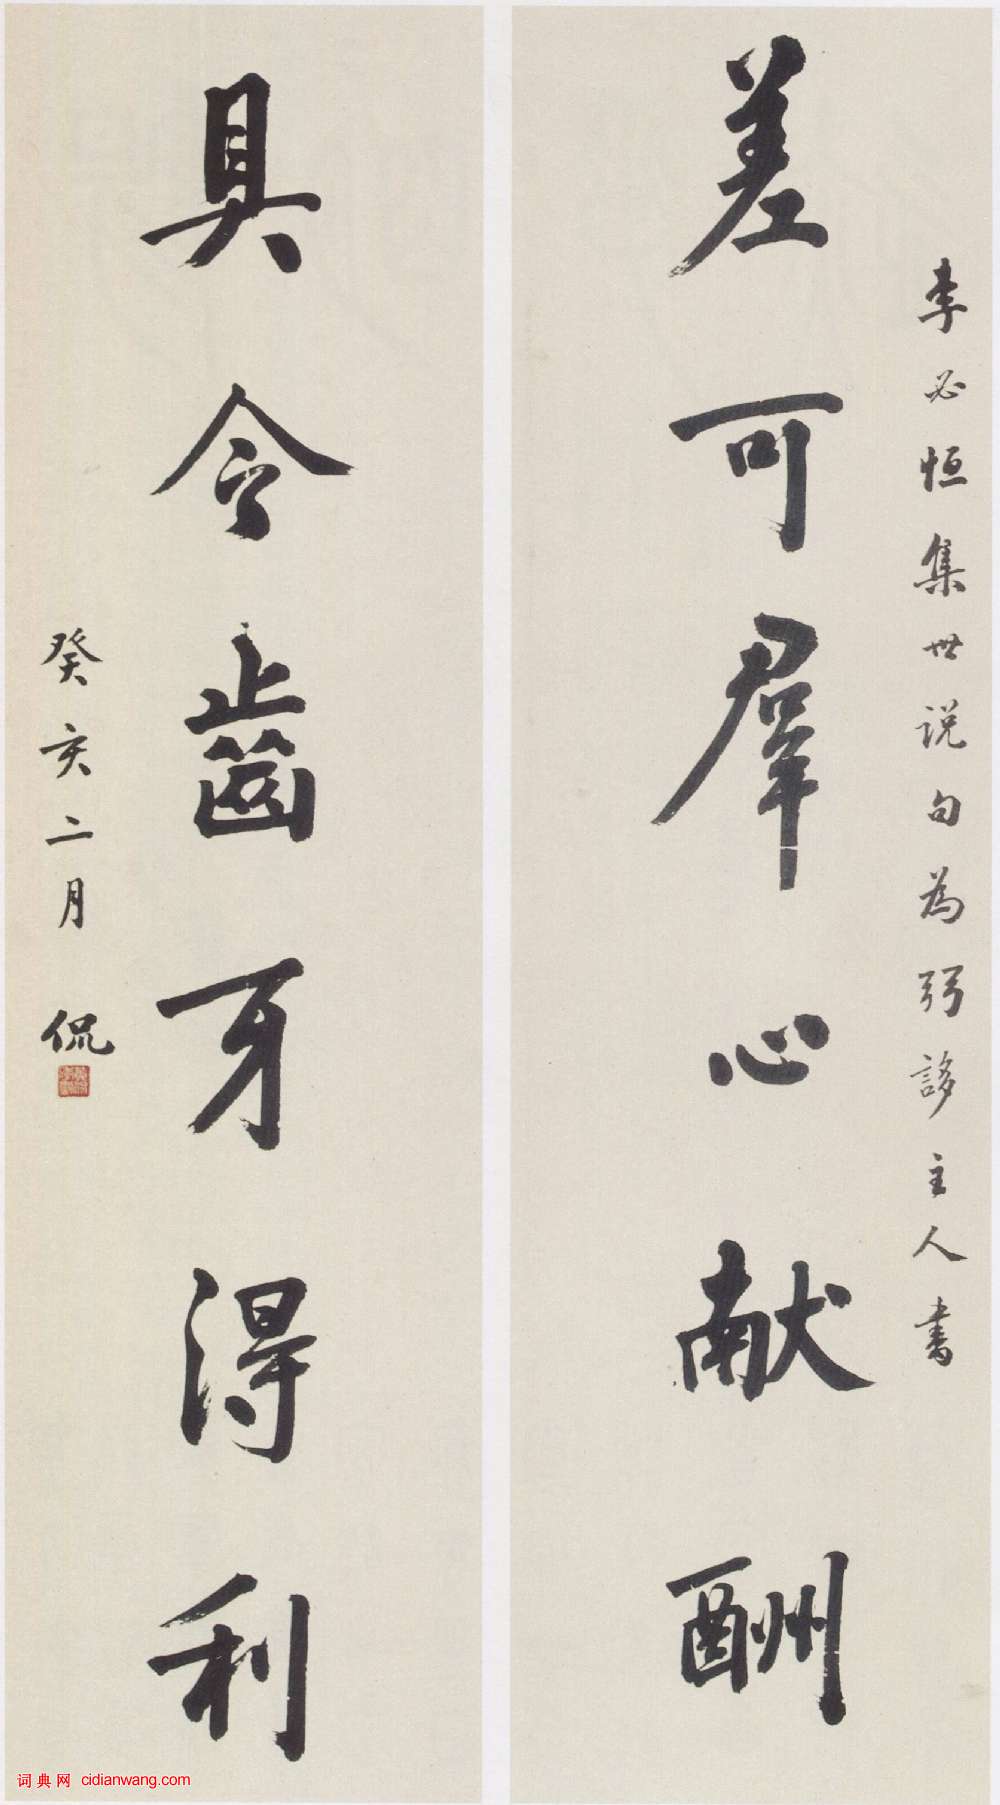 李必恒集世说句为弱誃主人書
差可羣心献酬
具令齒牙得利
癸亥二月 侃
词典网 cidianwang.com